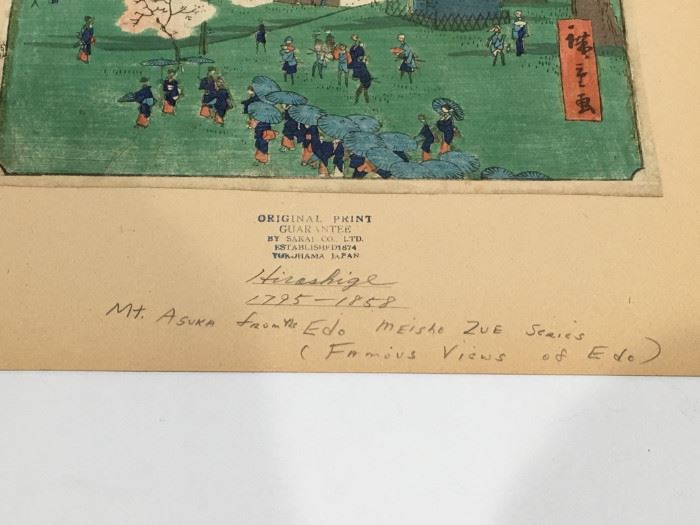 廣重画
ORIGINAL PRINT
GUARANTEE
BY SAKAI CO. LTD.
ESTABLISHED 1874
YOKOHAMA JAPAN
Hiroshige
1795-1858
Mt. Asuka from the Edo meisho Zue Series
(Famous Views of Edo)